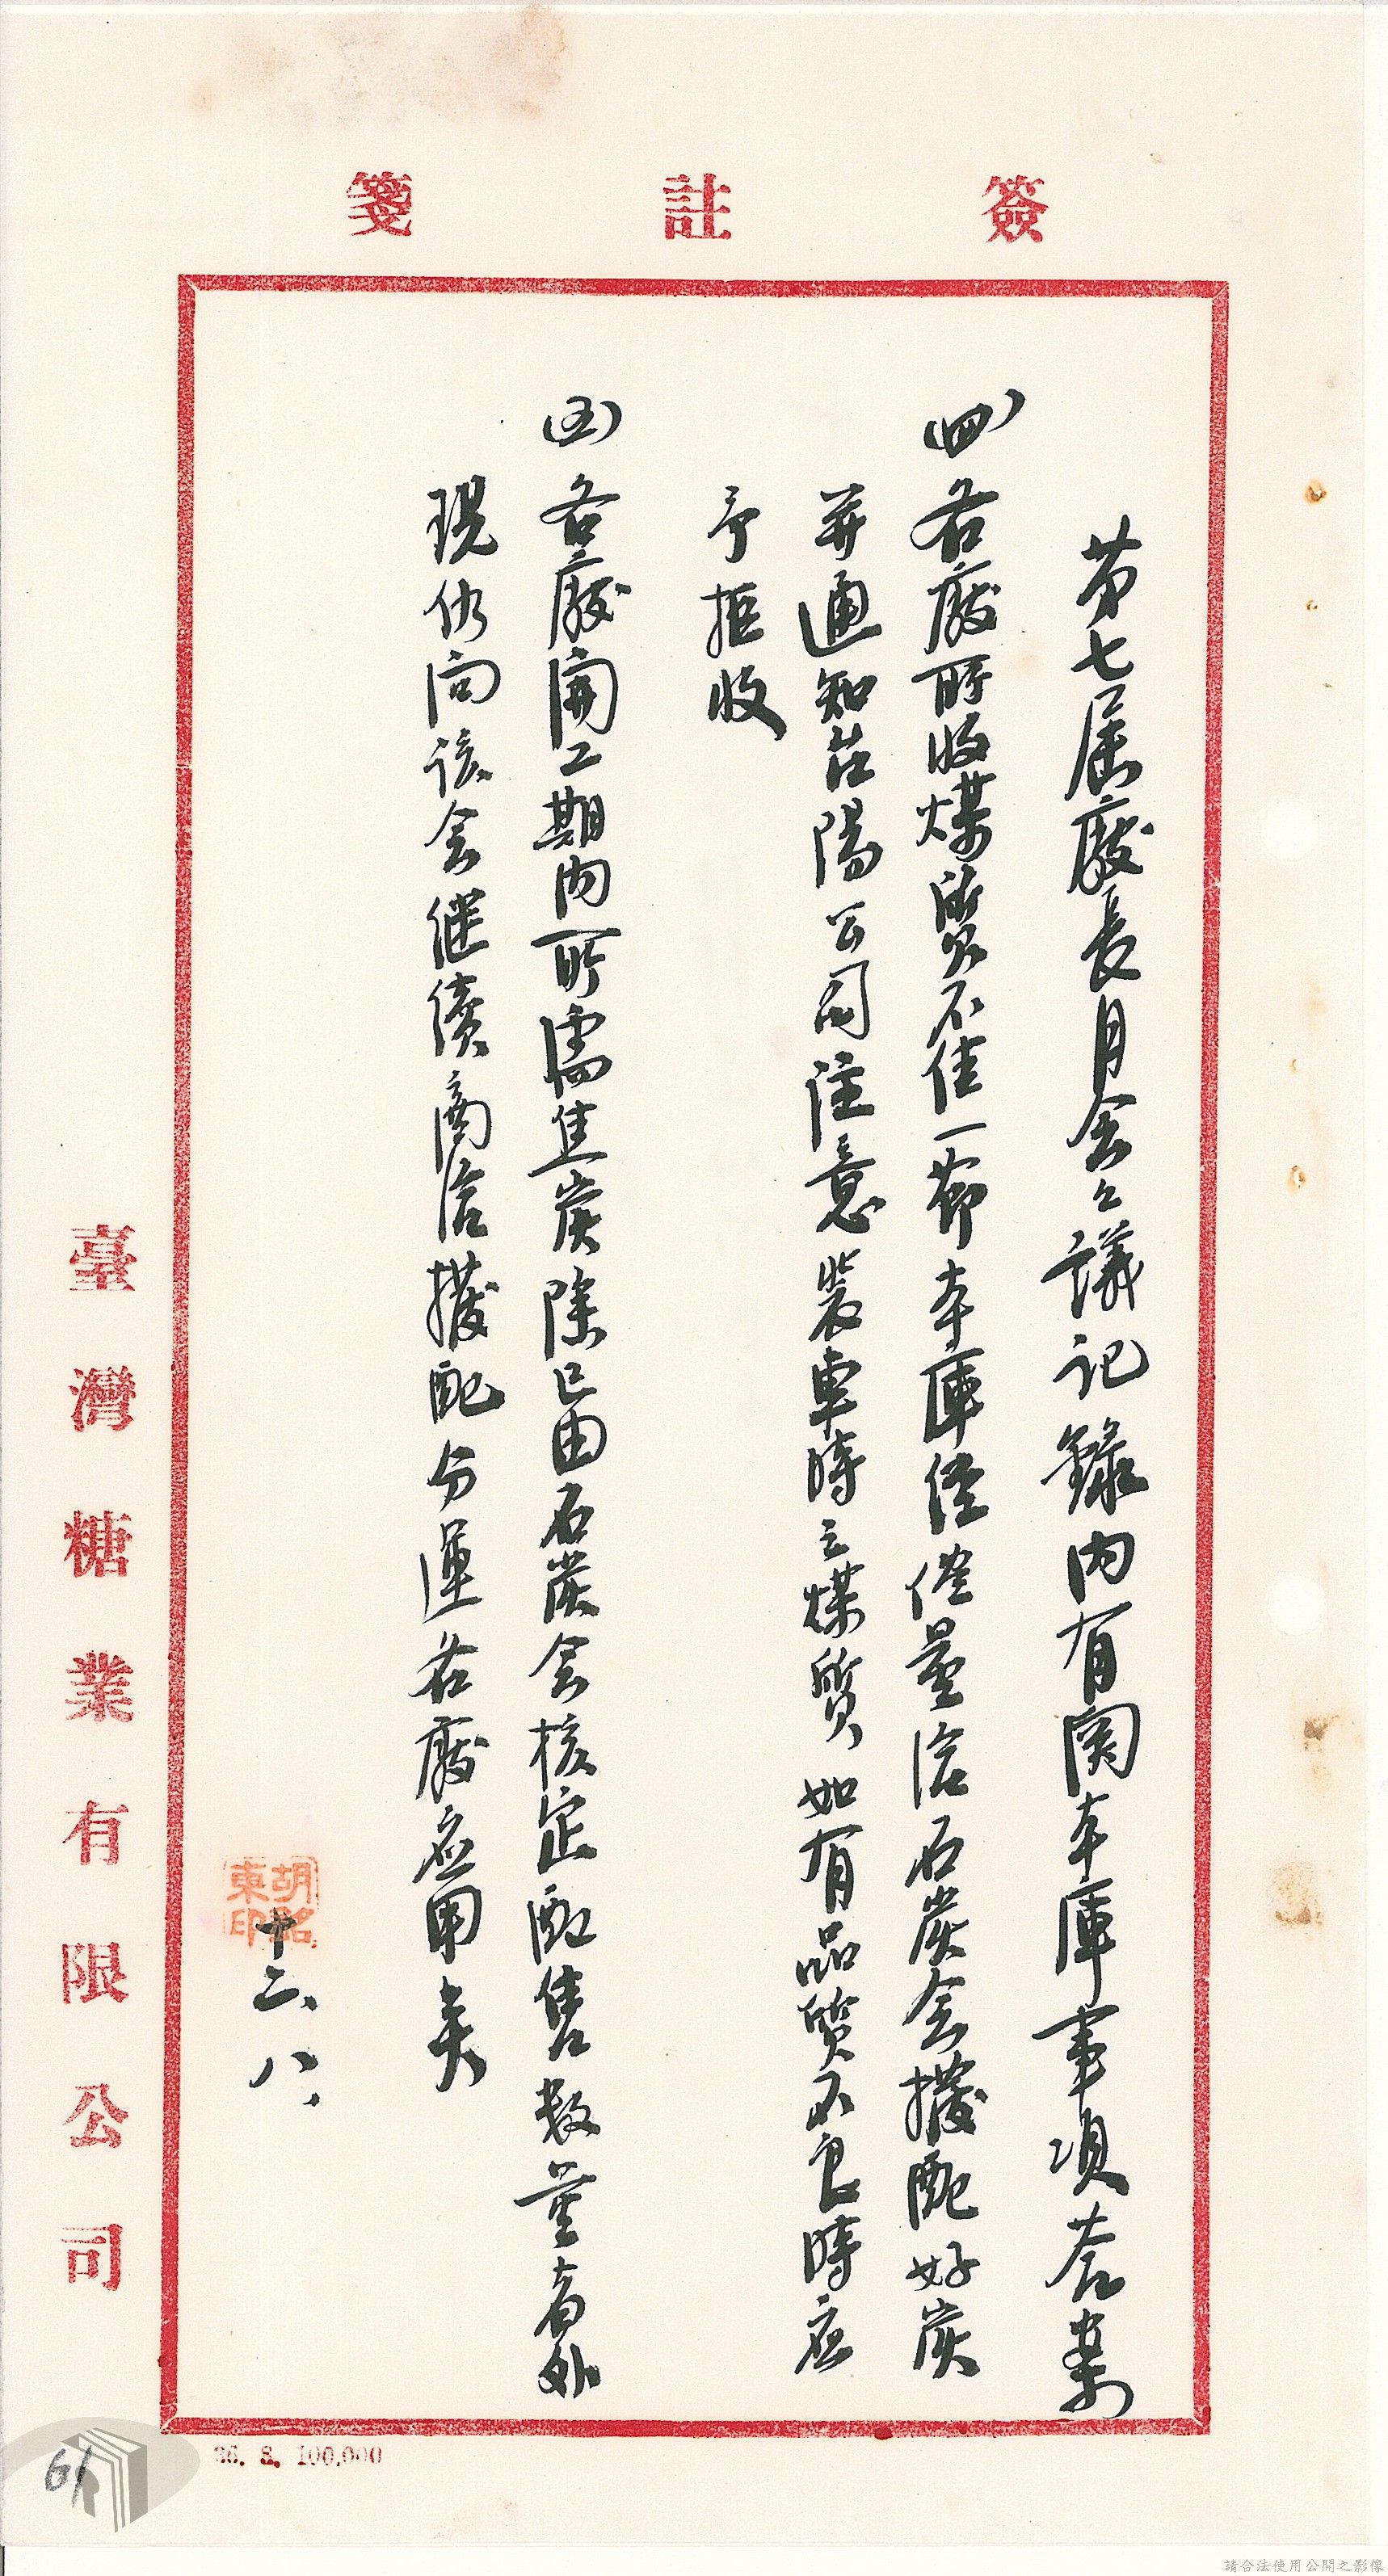 簽註箋
第七届廠長月会会議记錄内有関本庫事項荅案
(四)各廠所收煤質不佳一節本庫経儘量洽石炭会撥配好炭
并通知台陽公司注意裝車時之煤質如有品質不良時应
予拒收
(五)各廠開工期内所需焦炭除已由石炭会核定配售数量者外
現仍向该会继續商洽撥配分運各廠应用矣
胡銘東印
十二、八、
臺灣糖業有限公司
36. 8. 100,000
61
請合法使用公開之影像